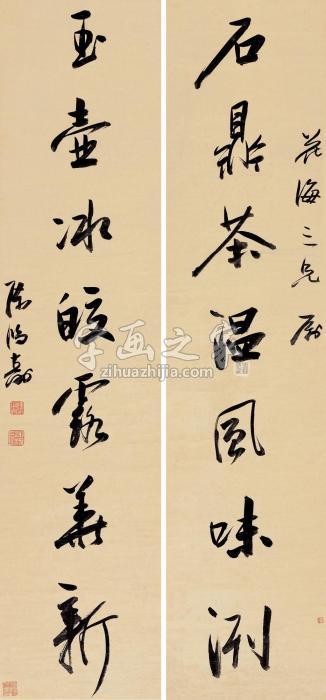 海三兄屬
石鼎茶温風味洌
玉壺冰皎露華新
陳鴻壽
字画之家
zihuazhijia.com